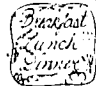 Breakfast
Lunch
Dinner